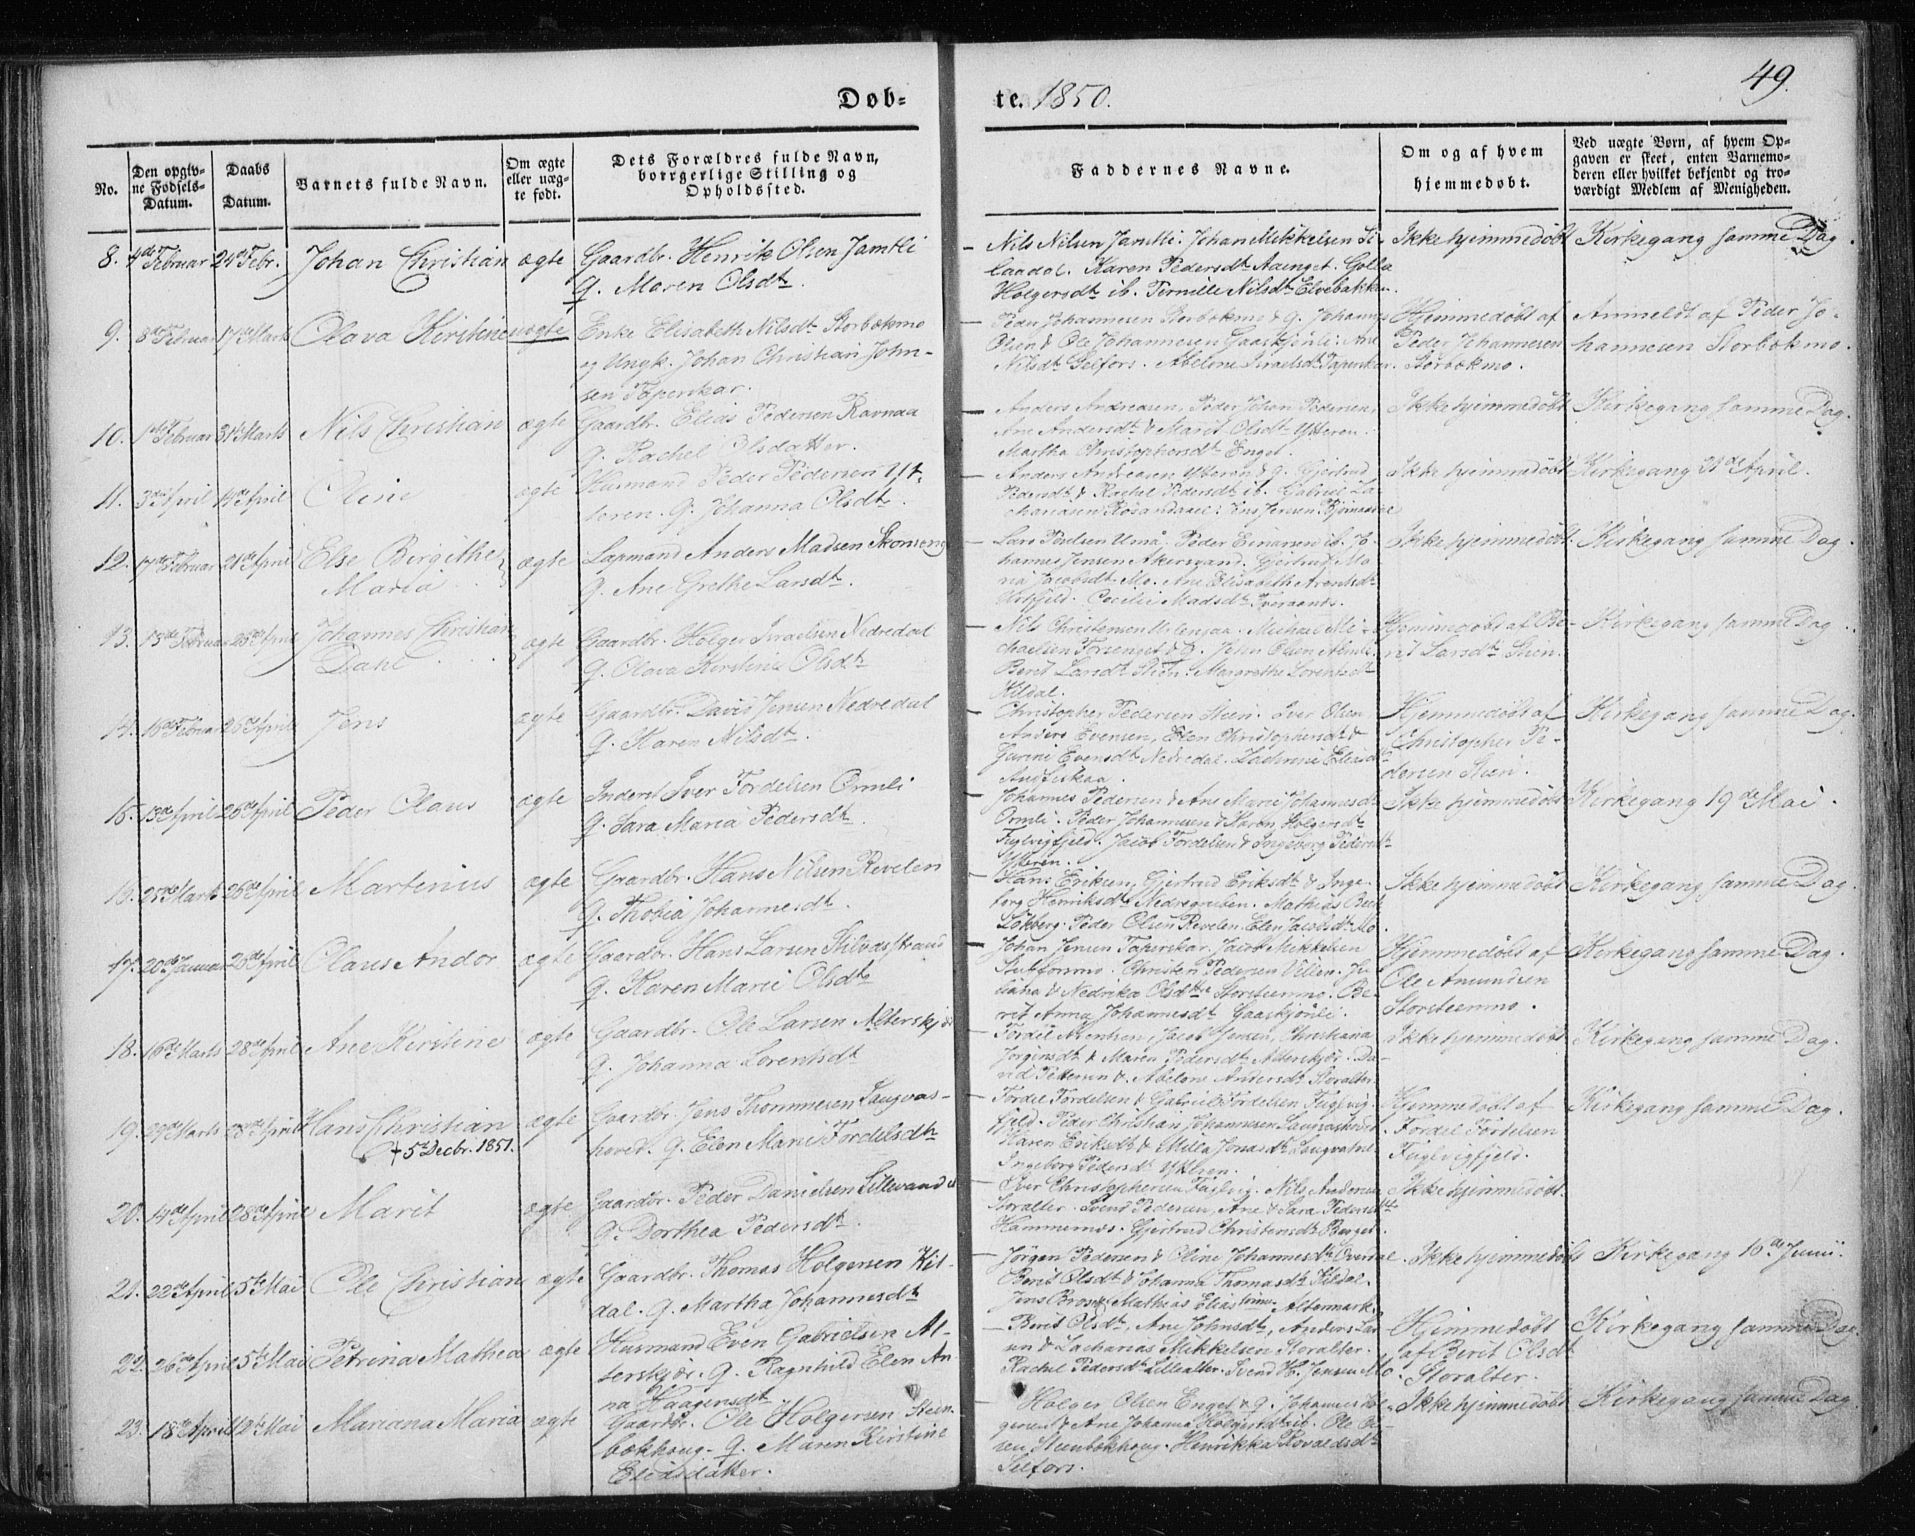 49.
Døb-
te. 1850.
No.
Den opgiv-
ne Fødsels-
Datum.
Daabs
Datum.
Barnets fulde Navn.
Om ægte
eller uæg-
te født.
Dets Forældres fulde Navn,
borgerlige Stilling og
Opholdssted.
Faddernes Navne.
Om og af hvem
hjemmedøbt.
Ved uægte Børn, af hvem Op-
gaven er skeet, enten Barnemo-
deren eller hvilket bekjendt og tro-
værdigt Medlem af Menigheden.
8. 4de Februar 24de Febr. Johan Christian ægte
Gaardbr. Henrik Olsen Jamtli
Q. Maren Olsdtr.
Nils Nilsen Jamtli. Johan Mikkelsen
Karen Pedersdtr Aaenget. Golla
Holgersdtr ib. Pernille Nilsdtr Elvebakken.
Ikke hjemmedøbt
Kirkegang samme Dag.
9. 8de Februar 17de Marts Olava Kirstine uægte
Enke Elisabeth Nilsdtr Storbækmo
og Ungk. Johan Christian John-
sen Taperskar.
Peder Johannesen Storbækmo & Q. Johannes
Olsen & Ole Johannesen Gaaskjønli. Ane
Nilsdtr Selfors. Abelone Israelsdtr Taperskar.
Hjemmedøbt af
Peder Johannesen
Storbækmo.
Anmeldt af Peder Jo-
hannesen Storbækmo.
10. 1ste Februar 31te Marts Nils Christian ægte
Gaardbr. Elias Pedersen Ravnaa
Q. Rachel Olsdatter.
Anders Andreasen, Peder Johan Pedersen,
Ane Andersdtr & Marit Olsdtr Ytteren.
Martha Christophersdtr Enget.
Ikke hjemmedøbt
Kirkegang samme Dag.
11. 3die April 14de April Oline ægte
Husmand Peder Pedersen Yt-
teren. Q. Johanna Olsdtr.
Anders Andreasen Ytteren & Q. Gjertrud
Pedersdtr & Rachel Pedersdtr ib. Gabriel Za-
chariasen Rosandaael. Jens Jensen
Ikke hjemmedøbt
Kirkegang 21de April.
12. 17de Februar 21de April Else Birgithe
Maria ægte
Lapmand Anders Madsen Skomong
Q. Ane Grethe Larsdtr.
Lars Poulsen Umå. Peder Einarsen ib. Jo-
hannes Jensen Akersvand. Gjertrud Ma-
ria Jacobsdtr Mo. Ane Elisabeth Arentsdtr
Cecilie Madsdtr Tveraanes.
Ikke hjemmedøbt
Kirkegang samme Dag.
13. 13de Februar 26de April Johannes Christian
Dahl ægte
Gaardbr. Holger Israelsen Nedredal
Q. Olava Kirstine Olsdtr
Nils Christensen Urlensaa. Michael Mi-
chaelsen Forsenget & Q. John Olsen
Berit Larsdtr Steen. Margrethe Lorentsdtr
Kildal.
Hjemmedøbt af Be-
rit Larsdtr Steen.
Kirkegang samme Dag.
14. 16de Februar 26de April Jens ægte
Gaardbr. David Jensen Nedredal
Q. Karen Nilsdtr.
Christopher Pedersen Steen. Iver Olsen
Anders Evensen, Elen Christophersdtr &
Gurine Evensdtr Nedredal. Zachrine Eliasdtr
Andfiskaa.
Hjemmedøbt af
Christopher Pe-
dersen Steen.
Kirkegang samme Dag.
15. 13de April 26de April Peder Olaus ægte
Inderst Iver Fordelsen Ørnli
Q. Sara Maria Pedersdtr.
Johannes Pedersen & Ane Marie Johannesdtr
Ørnli. Peder Johannesen & Karen Holgersdtr
Fuglvigfjeld. Jacob Fordelsen & Ingeborg Pedersdtr
Ytteren.
Ikke hjemmedøbt
Kirkegang 19de Mai.
16. 25de Marts 26de April Martinus ægte
Gaardbr. Hans Nilsen Revelen
Q. Thobia Johannesdtr.
Hans Eriksen, Gjertrud Eriksdtr & Inge-
borg Henriksdtr Nedregruben. Mathias Bech
Løkberg. Peder Olsen Revelen. Elen Jacobsdtr Mo.
Ikke hjemmedøbt
Kirkegang samme Dag.
17. 20de Januar 26de April Olaus Andor ægte
Gaardbr. Hans Larsen Stilvasstrand
Q. Karen Marie Olsdtr
Johan Jensen Taperskar. Jacob Mikkelsen
Stubformo. Christen Pedersen Villen. Ju-
liana & Nedrika Olsdttre Storsteenmo. Be-
rit Anna Johannesdtr Gaaskjønli.
Hjemmedøbt af
Ole Amundsen
Storsteenmo.
Kirkegang samme Dag.
18. 16de Marts 28de April Ane Kirstine ægte
Gaardbr. Ole Larsen Alterskjær
Q. Johanna Lorentsdtr
Fordel Arentsen, Jacob Jensen, Christiana
Jørgensdtr & Maren Pedersdtr Alterskjær. Da-
vid Pettersen & Abelone Andersdtr Storalter.
Ikke hjemmedøbt
Kirkegang samme Dag.
19. 29de Marts 28de April Hans Christian
† 5te Decbr. 1851. ægte
Gaardbr. Jens Thommesen Langvas-
hoved. Q. Elen Marie Fordelsdtr
Fordel Fordelsen & Gabriel Fordelsen Fuglvig-
fjeld. Peder Christian Johannesen Langvashoved
Karen Eriksdtr & Milla Jonasdtr
Ingeborg Pedersdtr Ytteren.
Hjemmedøbt af
Fordel Fordelsen
Fuglvigfjeld.
Kirkegang samme Dag.
20. 14de April 28de April Marit ægte
Gaardbr. Peder Danielsen Lillevand
Q. Dorthea Pedersdtr.
Iver Christophersen Fuglvig. Nils Andersen
Storalter. Svend Pedersen, Ane & Sara Pedersdttre
Hammernæs. Gjertrud Christensdtr Berget.
Ikke hjemmedøbt.
21. 22de April 5te Mai Ole Christian ægte
Gaardbr. Thomas Holgersen Kil-
dal. Q. Martha Johannesdtr
Jørgen Pedersen & Oline Johannesdtr
Berit Olsdtr & Johanna Thomasdtr Kildal.
Jens Brosø, Mathias Eliassen Altermark.
Ikke hjemmedøbt
Kirkegang 16de Junii.
22. 26de April 5te Mai Petrina Mathea ægte
Husmand Even Gabrielsen Al-
terskjær. Q. Ragnhild Elen An-
na Haagensdtr
Berit Olsdtr, Ane Johnsdtr, Anders Lar-
sen & Zacharias Mikkelsen Storalter.
Rachel Pedersdtr Lillealter. Svend H. Jensen Mo.
Hjemmedøbt
af Berit Olsdtr
Storalter.
Kirkegang samme Dag.
23. 18de April 12te Mai Mariana Maria ægte
Gaardbr. Ole Holgersen Steen-
bækhoug. Q. Maren Kirstine
Eliasdatter.
Holger Olsen Enget & Q. Johannes Hol-
gersen & Ane Johanna Holgersdtr ib. Ole Ol-
sen Steenbækhoug. Henrikka Roaldsdtr
Selfors.
Ikke hjemmedøbt
Kirkegang samme Dag.